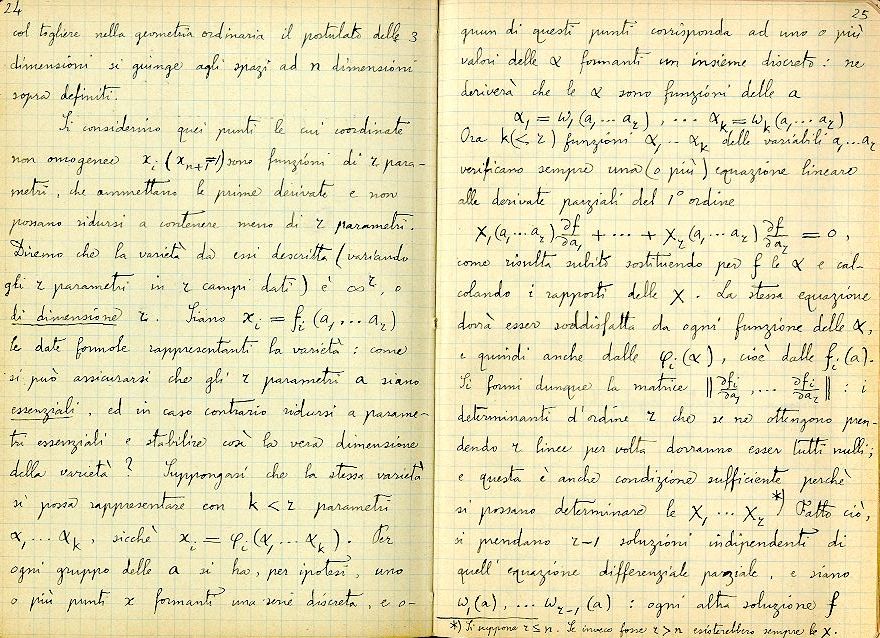 24
col togliere nella geometria ordinaria il postulato delle 3
dimensioni si giunge agli spazi ad n dimensioni
sopra definiti.
Si considerino quei punti le cui coordinate
non omogenee x_i (x_{n+1}=1) sono funzioni di r para-
metri, che ammettano le prime derivate e non
possano ridursi a contenere meno di r parametri.
Diremo che la varietà da essi descritta (variando
gli r parametri in r campi dati) è ∞^r, o
di dimensione r. Siano x_i = f_i (a_1 ... a_r)
le date formole rappresentanti la varietà: come
si può assicurarsi che gli r parametri a siano
essenziali, ed in caso contrario ridursi a parame-
tri essenziali e stabilire così la vera dimensione
della varietà? Suppongasi che la stessa varietà
si possa rappresentare con k < r parametri
α_1 ... α_k, sicchè x_i = φ_i (α_1 ... α_k). Per
ogni gruppo delle a si ha, per ipotesi, uno
o più punti x formanti una serie discreta, e o-
25
gnun di questi punti corrisponda ad uno o più
valori delle α formanti un insieme discreto: ne
deriverà che le α sono funzioni delle a
α_1 = ω_1 (a_1 ... a_r), ... α_k = ω_k (a_1 ... a_r)
Ora k (< r) funzioni α_1 ... α_k delle variabili a_1 ... a_r
verificano sempre una (o più) equazione lineare
alle derivate parziali del 1° ordine
X_1 (a_1 ... a_r) ∂f/∂a_1 + ... + X_r (a_1 ... a_r) ∂f/∂a_r = 0,
come risulta subito sostituendo per f le α e cal-
colando i rapporti delle X. La stessa equazione
dovrà esser soddisfatta da ogni funzione delle α,
e quindi anche dalle φ_i (α), cioè dalle f_i (a).
Si formi dunque la matrice ‖∂f_i/∂a_1, ... ∂f_i/∂a_r‖: i
determinanti d'ordine r che se ne ottengono pren-
dendo r linee per volta dovranno esser tutti nulli;
e questa è anche condizione sufficiente perchè
si possano determinare le X_1 ... X_r *) Fatto ciò,
si prendano r-1 soluzioni indipendenti di
quell'equazione differenziale parziale, e siano
ω_1 (a), ... ω_{r-1} (a): ogni altra soluzione f
*) Si suppone r ≤ n. Se invece fosse r > n esisterebbero sempre le X.